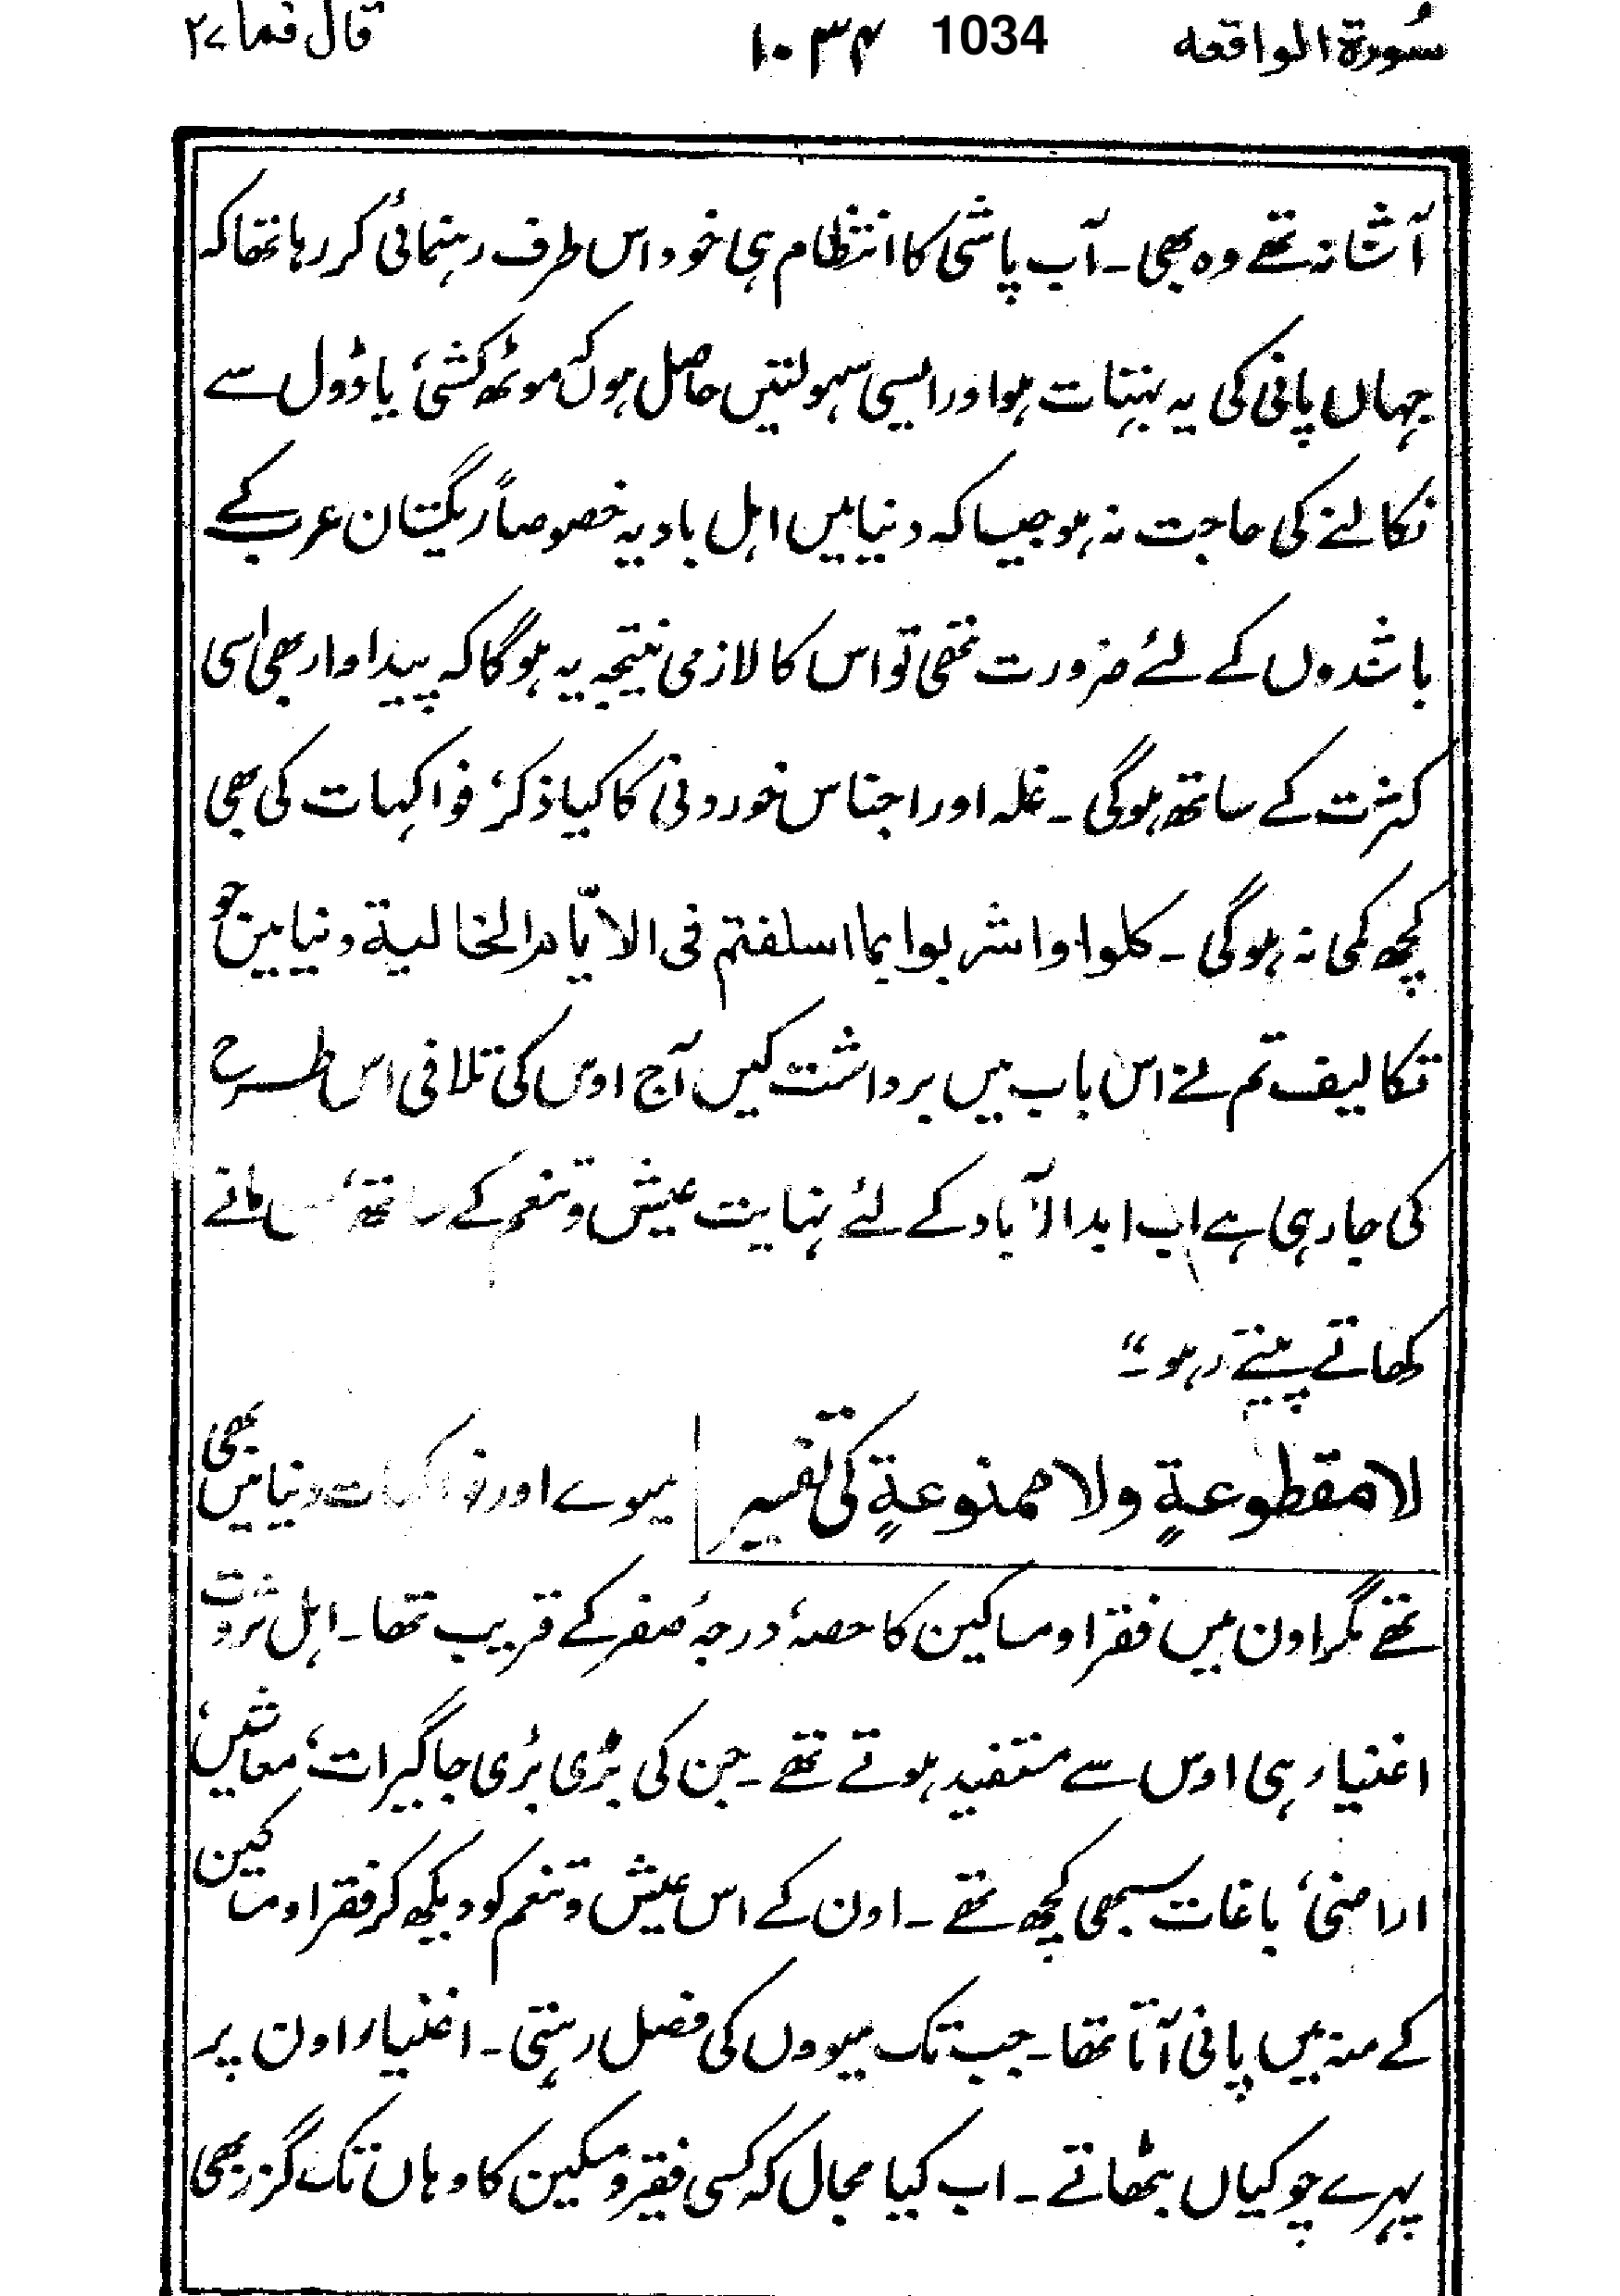 سُورۃ الواقعہ 1034 ۱۰۳۴ قال فما ۲۷
آشنا نہ تھے وہ بھی۔ آب پاشی کا انتظام ہی خود اس طرف رہنمائی کر رہا تھا کہ
جہاں پانی کی یہ بہتات ہو اور ایسی سہولتیں حاصل ہوں کہ موٹھ کشی، یا ڈول سے
نکالنے کی حاجت نہ ہو جیسا کہ دنیا میں اہل بادیہ خصوصاً ریگستان عرب کے
باشندوں کے لئے ضرورت تھی تو اس کا لازمی نتیجہ یہ ہوگا کہ پیداوار بھی اسی
کثرت کے ساتھ ہوگی۔ غلہ اور اجناس خوردنی کا کیا ذکر، فواکہات کی بھی
کچھ کمی نہ ہوگی۔ کلوا واشربوا بما اسلفتم فی الایّام الخالیة دنیا میں جو
تکالیف تم نے اس باب میں برداشت کیں آج اوس کی تلافی اس طرح
کی جا رہی ہے اب ابد الآباد کے لئے نہایت عیش و تنعم کے ساتھ، مانے
کھاتے پیتے رہو۔“
لا مقطوعةٍ ولا ممنوعةٍ کی تفسیر میوے اور فواکہات دنیا میں بھی
تھے مگر اون میں فقرا و مساکین کا حصہ، درجۂ صفر کے قریب تھا۔ اہل ثروت
اغنیاء ہی اوس سے مستفید ہوتے تھے۔ جن کی بڑی بڑی جاگیرات، معاشیں،
اراضی، باغات سبھی کچھ تھے۔ اون کے اس عیش و تنعم کو دیکھ کر فقرا و مساکین
کے منہ میں پانی آتا تھا۔ جب تک میووں کی فصل رہتی۔ اغنیاء اون پر
پہرے چوکیاں بٹھاتے۔ اب کیا مجال کہ کسی فقیر و مسکین کا وہاں تک گزر بھی